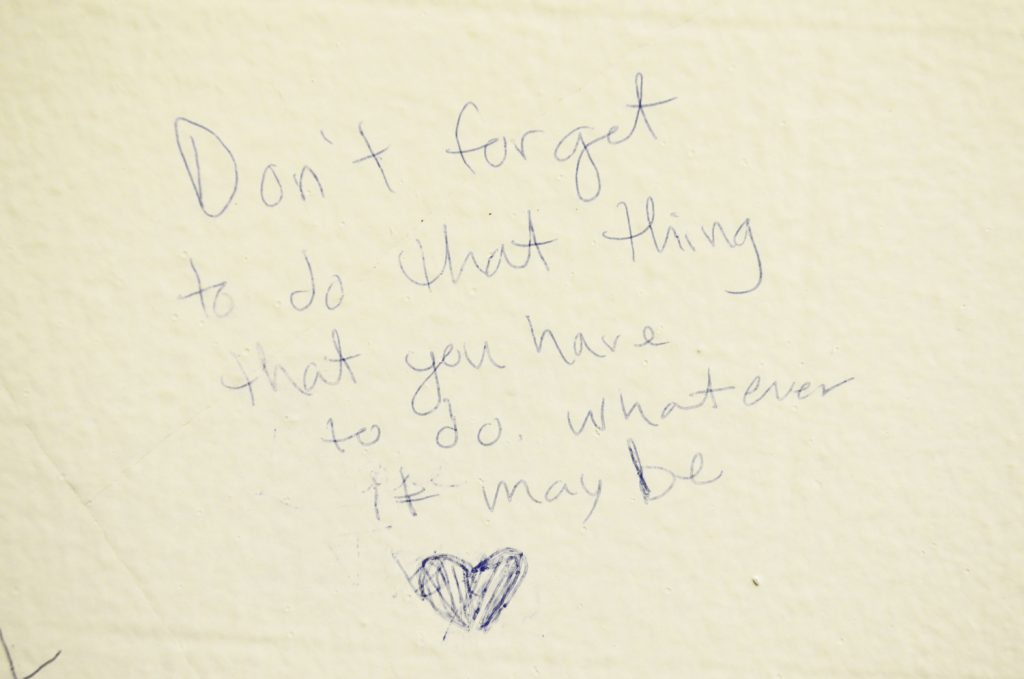 Don't forget
to do that thing
that you have
to do. whatever
it may be